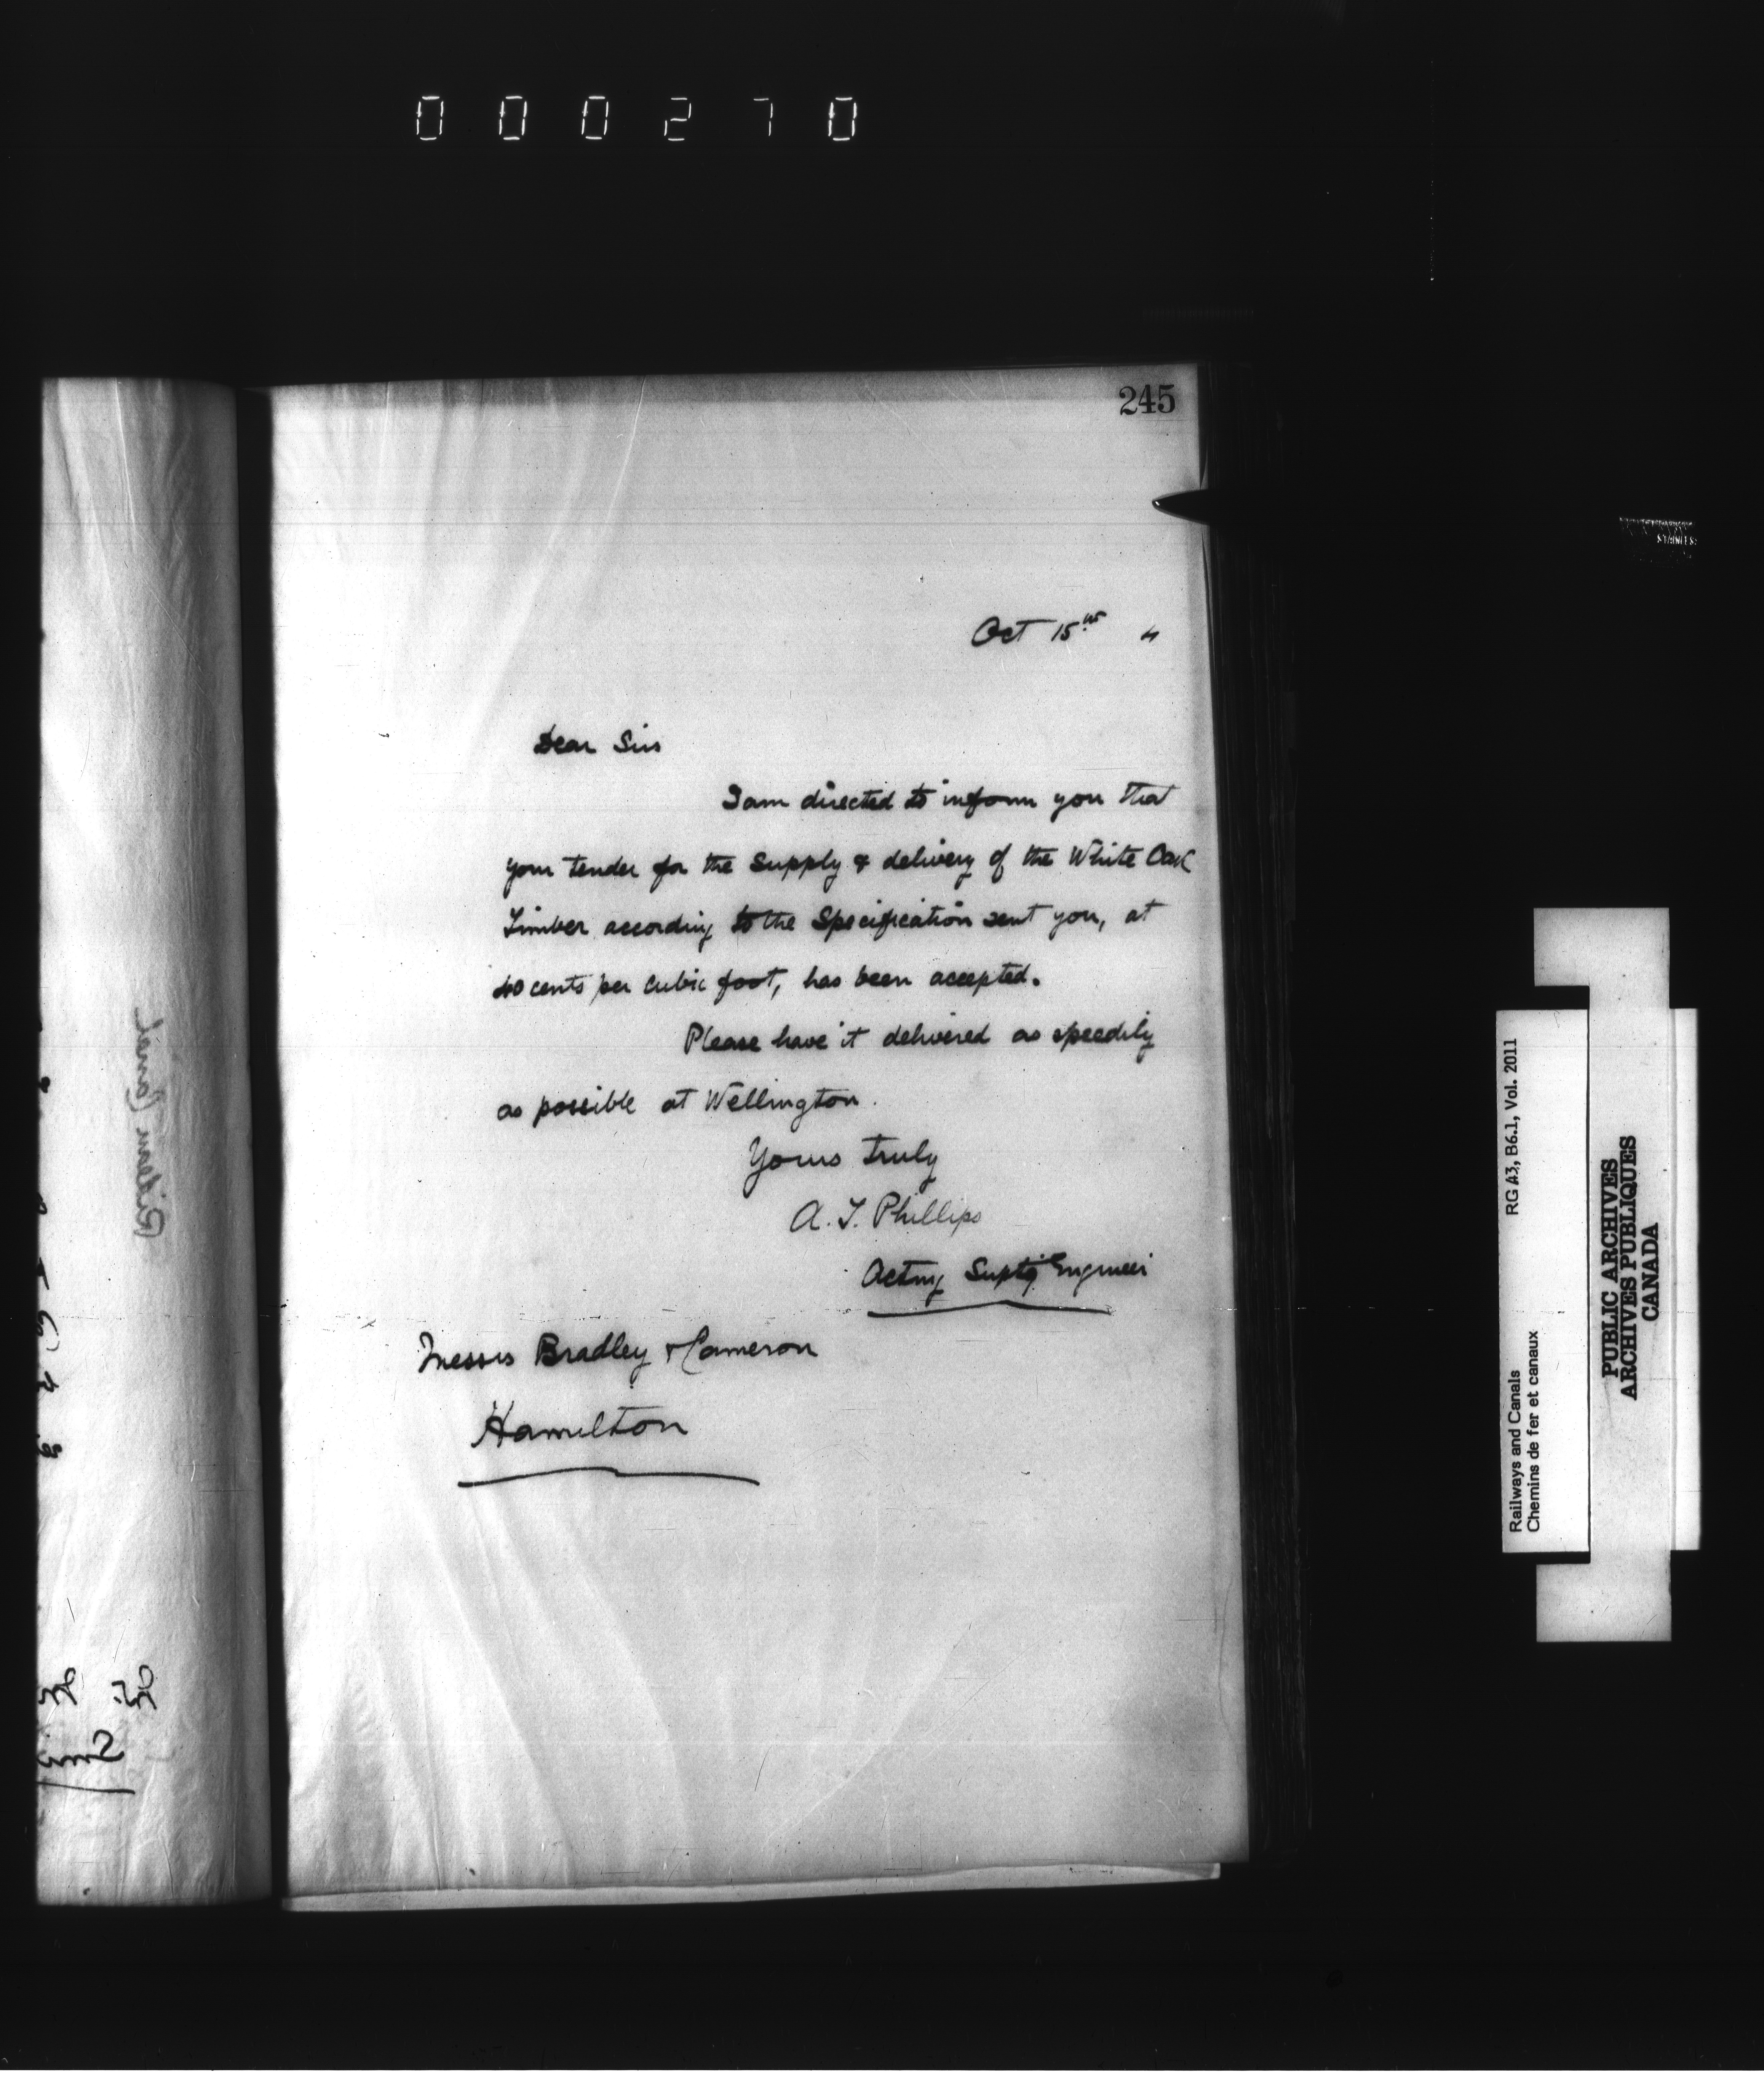 000270
245
Oct 15th "
Dear Sirs
I am directed to inform you that
your tender for the Supply & delivery of the White Oak
Timber according to the Specification sent you, at
40 cents per cubic foot, has been accepted.
Please have it delivered as speedily
as possible at Wellington.
Yours truly
A. T. Phillips
Acting Suptg Engineer
Messrs Bradley & Cameron
Hamilton
Rideau Canal
Railways and Canals RG 43, B6.1, Vol. 2011
Chemins de fer et canaux
PUBLIC ARCHIVES
ARCHIVES PUBLIQUES
CANADA